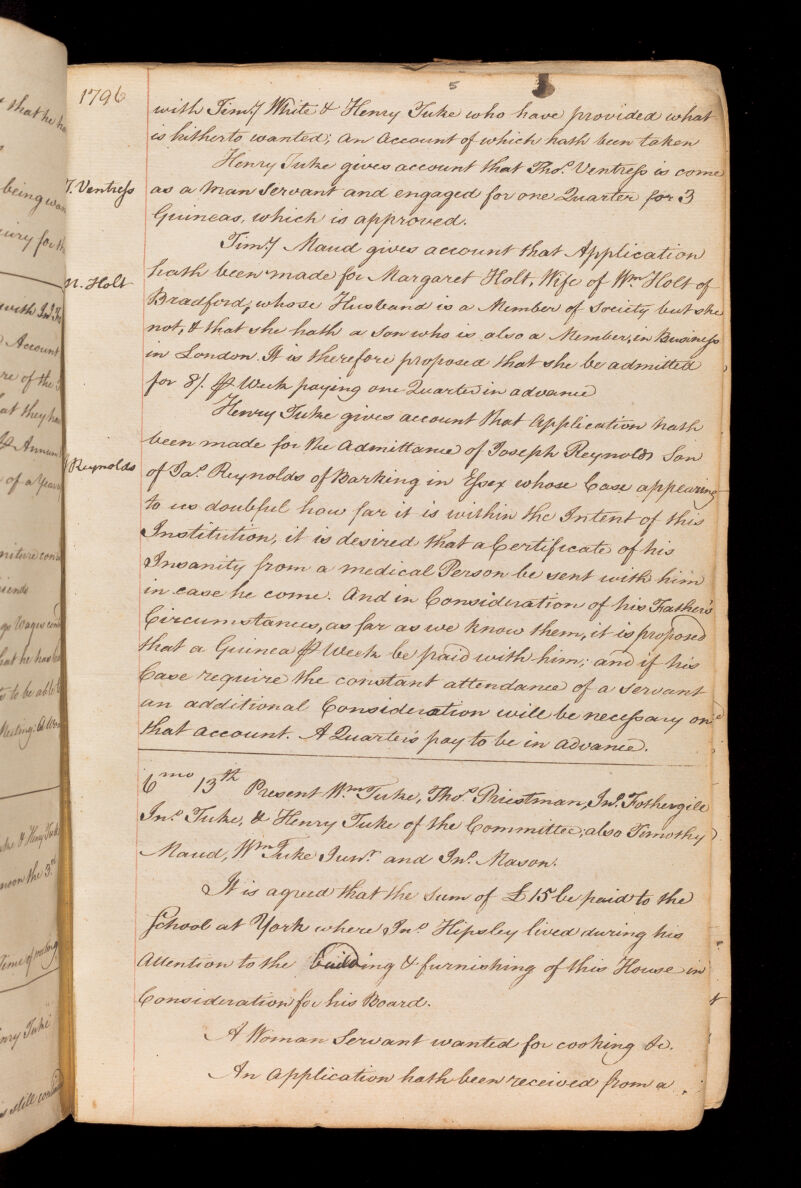 1796
5
with Timy White & Henry Tuke who have provided what
is hitherto wanted; an Account of which hath been taken
Henry Tuke gives account that Thos. Ventress is come
T. Ventress
as a Man Servant and engaged for one Quarter for 3
Guineas, which is approved.
Timy Maud gives account that Application
M. Holt
hath been made for Margaret Holt, Wife of Wm Holt of
Bradford, whose Husband is a Member of Society but she
not, & that she hath a son who is also a Member, in Business
in London. It is therefore proposed that she be admitted
for 8/. ⅌ Week paying one Quarter in advance
Henry Tuke gives account that Application hath
been made for the Admittance of Joseph Reynolds Son
Reynolds
of Jas. Reynolds of Barking in Essex whose Case appearing
to us doubful how far it is within the Intent of this
Institution, it is desired that a Certificate of his
Insanity from a medical Person be sent with him
in case he come. And in Consideration of his Father's
Circumstances, as far as we know them, it is proposed
that a Guinea ⅌ Week be paid with him; and if his
Case require the constant attendance of a servant
an additional Consideration will be necessary on
that account. A Quarter's pay to be in advance.
6mo 13th Present Wm Tuke, Thos. Priestman, Jno. Fothergill
Jno. Tuke, & Henry Tuke of the Committee; also Timothy
Maud, Wm Tuke Junr. and Jno. Mason.
It is agreed that the sum of £15 be paid to the
School at York where Jno. Hipsley lived during his
Attention to the building & furnishing of this House in
Consideration for his Board.
A Woman Servant wanted for cooking &c.
An Application hath been received from a